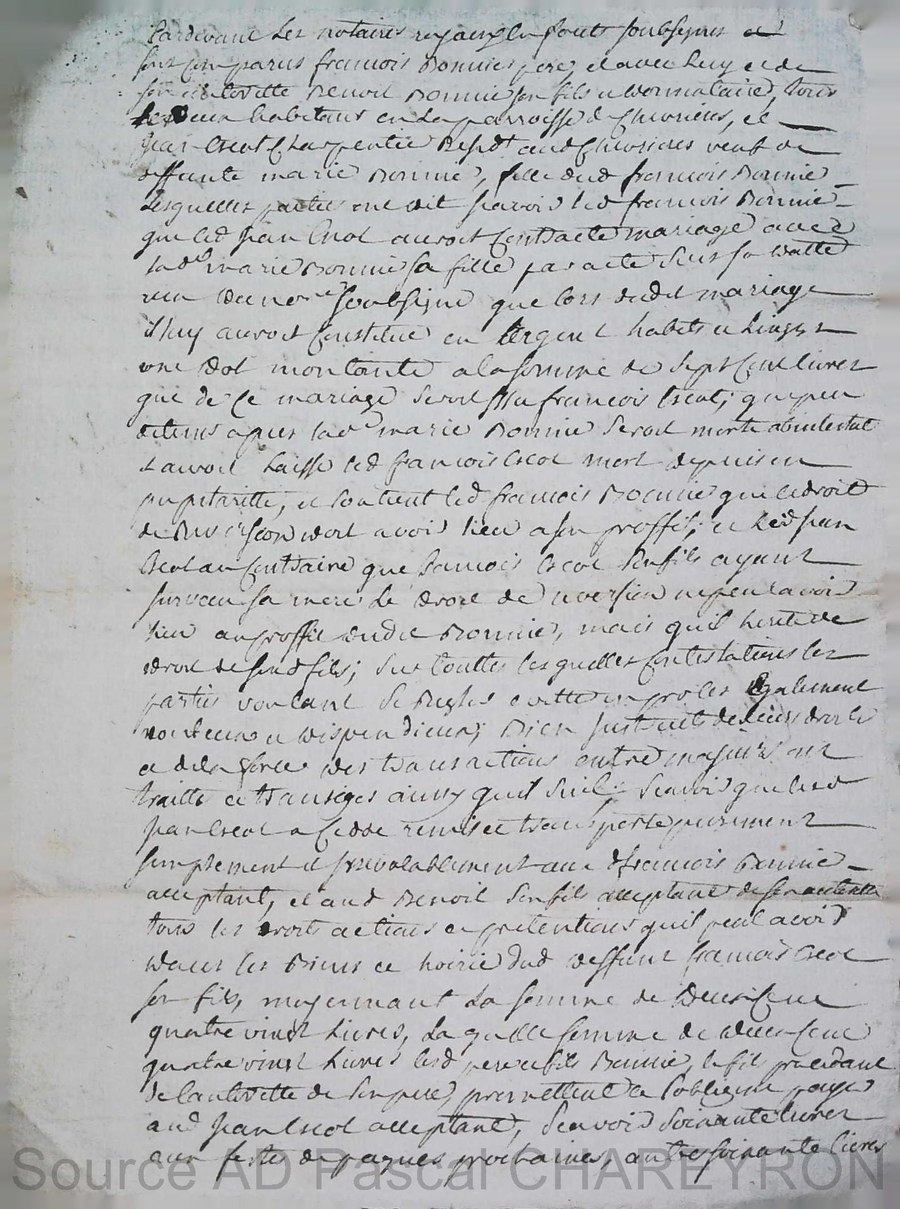 Pardevant les notaires royaux soubsignes
sont comparus francois Bonnier pere et avec luy et de
son authoritte Benoit Bonnier son fils et donnataire, tous
deux habitans en la parroisse de Chevrieres, et
Jean Escot Charpentier Resid^t aud Chevrieres veuf de
deffunte marie Bonnier, fille dud francois Bonnier
lesquelles parties ont dit scavoir led francois Bonnier
que led Jean Escot auroit contracté mariage avec
lad^e marie Bonnier sa fille par acte sur sa datte
receu soubsigné que lors dudit mariage
il luy auroit constitué en argent habits et linges
une dot montante a la somme de sept cent livres
que de ce mariage seroit issu francois Escot, que peu
de tems apres lad^e marie Bonnier seroit morte abintestat
et auroit laissé led francois Escot mort depuis en
pupilaritté, et soutient led francois Bonnier que le droit
de Reversion doit avoir lieu a son proffit; et led Jean
Escot au contraire que francois Escot son fils ayant
survecu sa mere le droit de reversion ne peut avoir
lieu au proffit dudit Bonnier, mais qu'il herite de
droit de sond fils; sur touttes lesquelles contestations les
parties voulant se Regler evitter un proces egalement
onteux et dispendieux; Bien instruits de leurs droits
et de la force des transactions entre majeurs ont
traitté et transiges ainsy quil suit: Scavoir que led
Jean Escot a cedde remis et transporte purement
simplement et irrevocablement aud francois Bonnier
acceptant, et aud Benoit son fils acceptant de son authoritté
tous les droits actions et pretentions quil peut avoir
dans les Biens et hoirie dud deffunt francois Escot
son fils, moyennant la somme de deux cent
quatre vingt livres, la quelle somme de deux cent
quatre vingt livres lesd pere et fils Bonnier, le fils procedant
de l'authoritté de son pere promettent et s'obligent payer
aud Jean Escot acceptant, Scavoir soixante livres
aux festes de paques prochaines, autres soixante livres
Source AD Pascal CHAREYRON